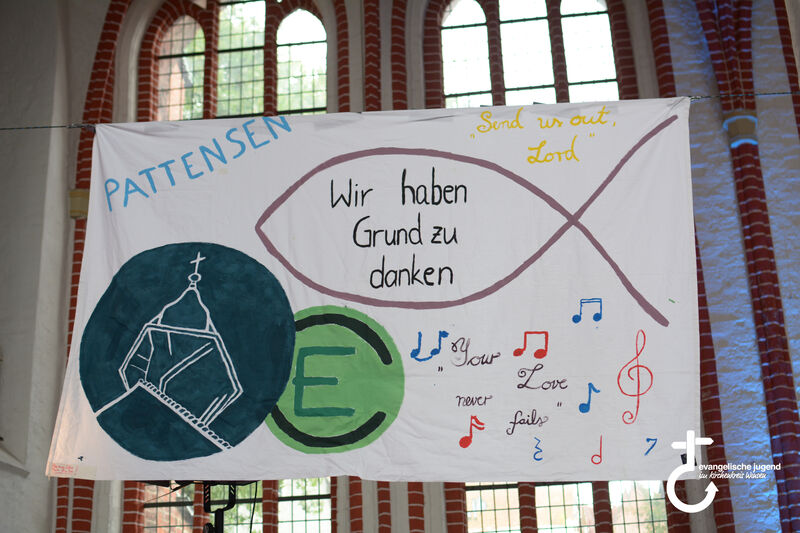 PATTENSEN
"Send us out,
Lord"
Wir haben
Grund zu
danken
E
"Your
Love
never
fails"
evangelische jugend
im kirchenkreis Winsen